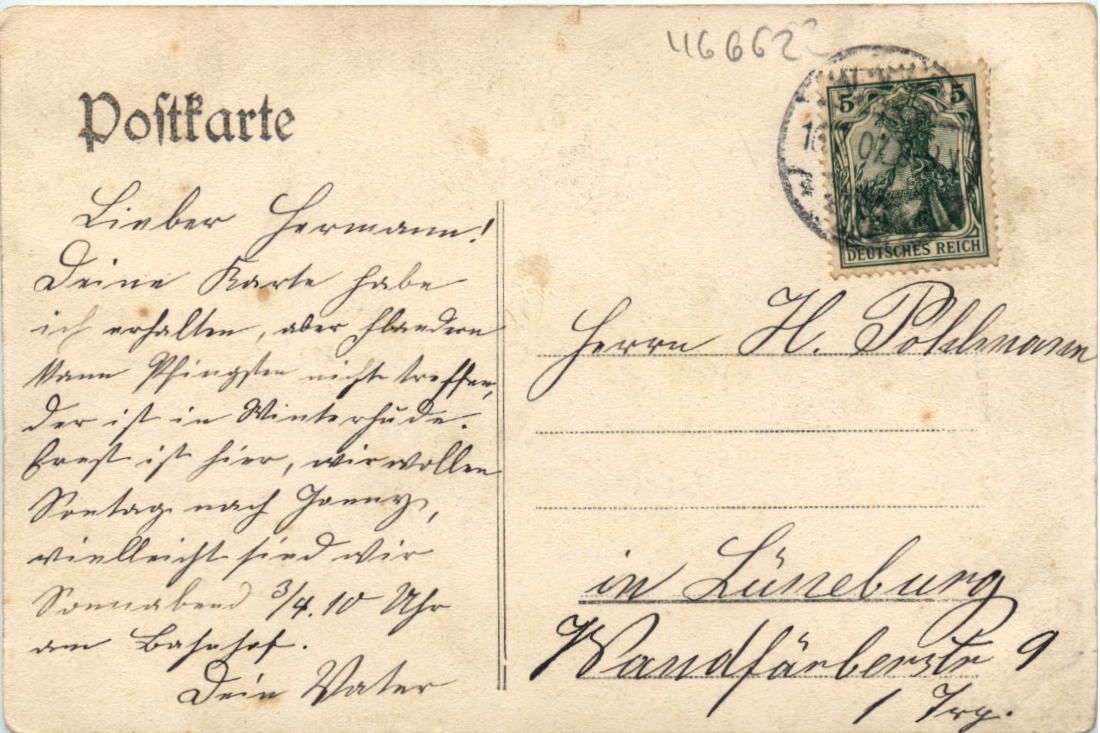 466622
Postkarte
5 5
DEUTSCHES REICH
Lieber Hermann!
Deine Karte habe
ich erhalten, aber
kann Pfingsten nicht treffen,
der ist in Winterhude.
Ernst ist hier, wir wollen
Sontag nach
vielleicht sind wir
Sonnabend 3/4.10 Uhr
am Bahnhof.
Dein Vater
Herrn H. Pohlmann
in Lüneburg
Wandfärberstr 9
1 Trp.